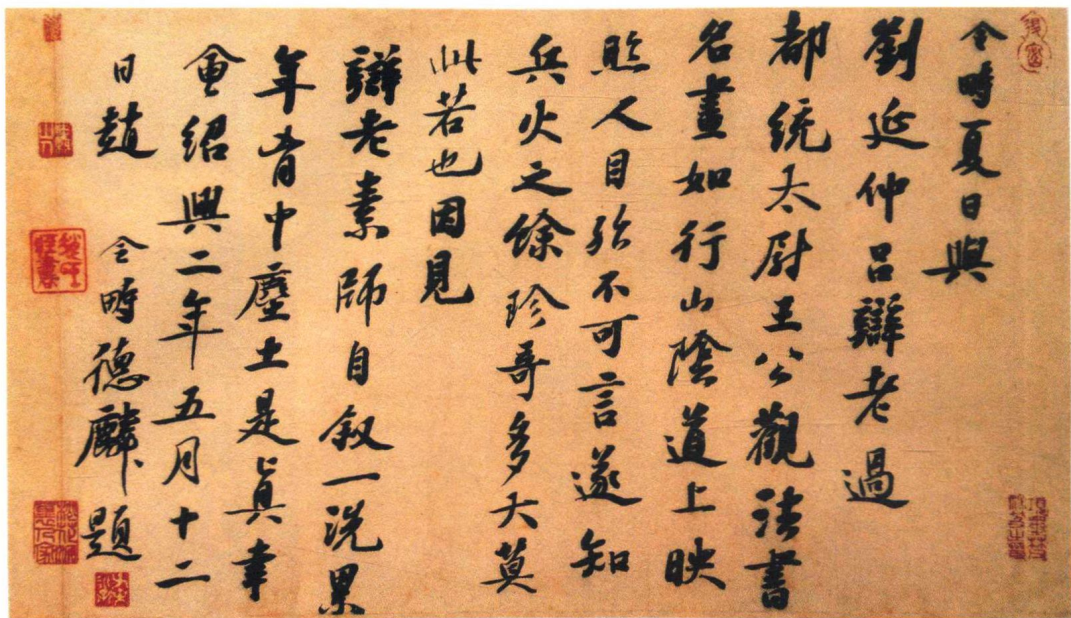 令時夏日與
劉延仲呂辯老過
都統太尉王公觀法書
名畫如行山陰道上映
照人目殆不可言遂知
兵火之餘珍哥多大莫
此若也因見
辯老素師自叙一洗累
年胷中塵土是真幸
會紹興二年五月十二
日趙令時德麟題